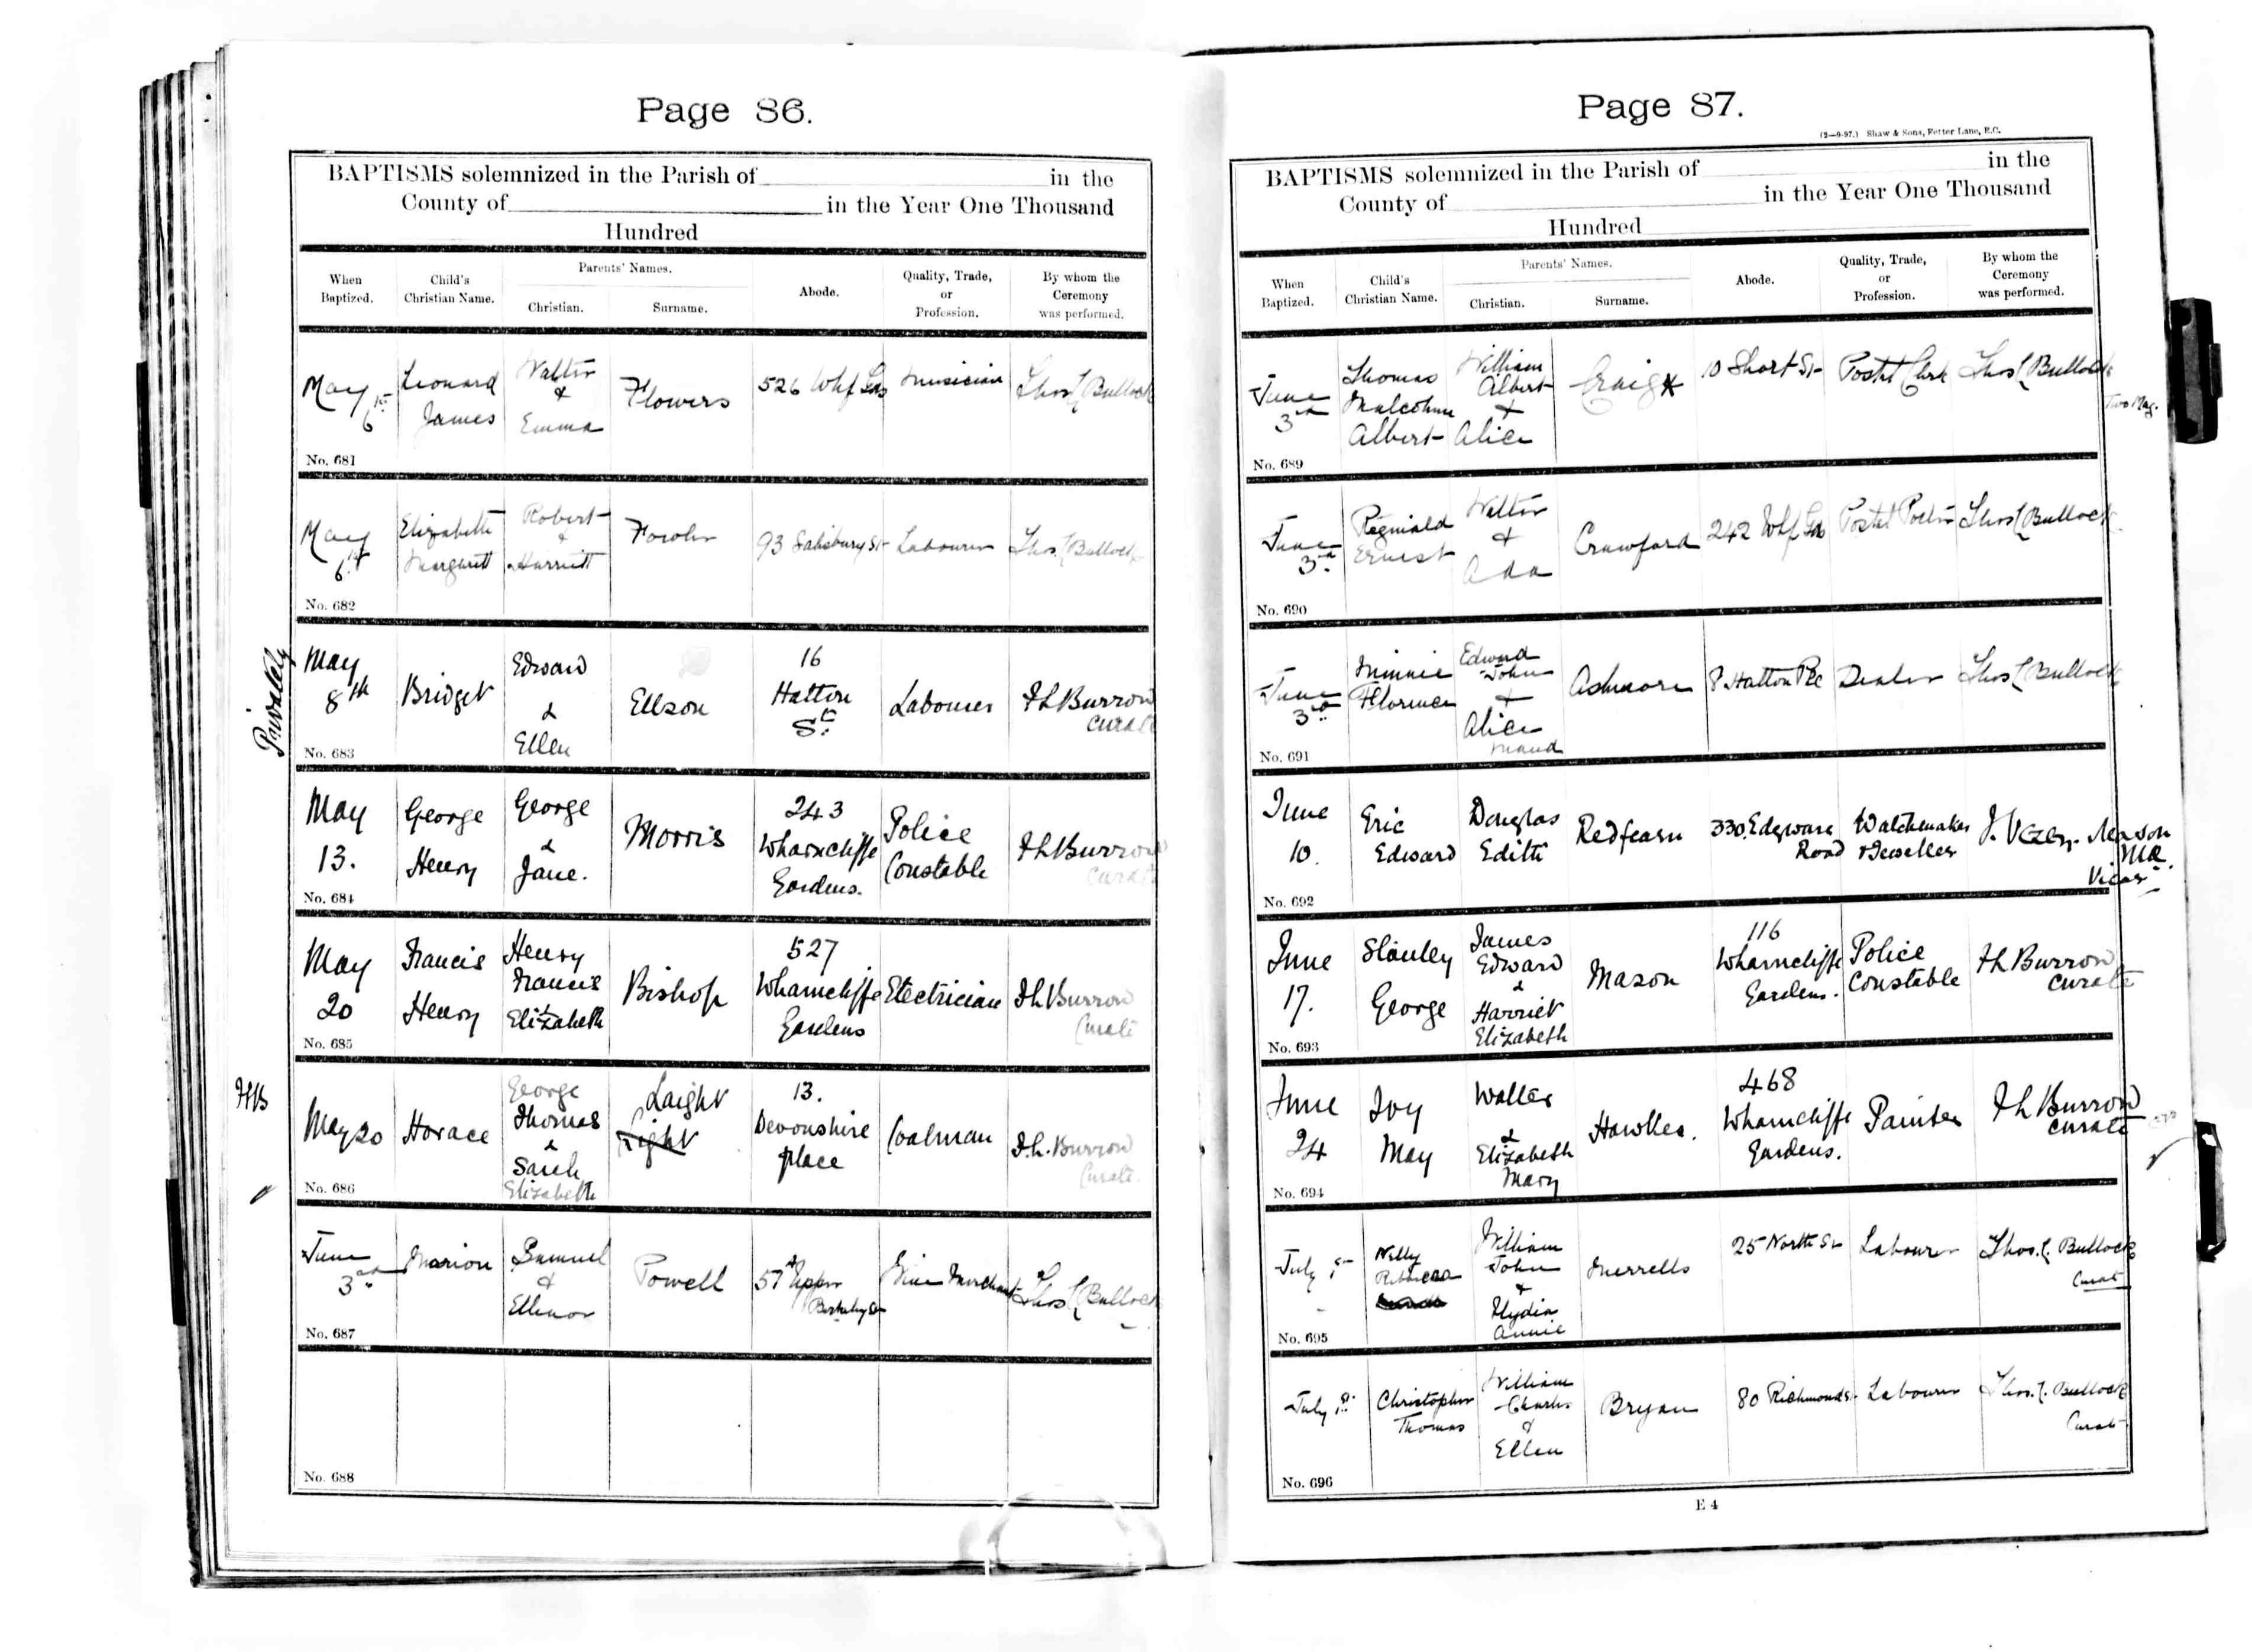 Page 86.
BAPTISMS solemnized in the Parish of in the
County of in the Year One Thousand
Hundred
When Baptized. Child's Christian Name. Parents' Names. Christian. Surname. Abode. Quality, Trade, or Profession. By whom the Ceremony was performed.
May 6 Leonard James Walter & Emma Flowers 526 Whf Gds Musician Thos C Bullock
No. 681
May 6 Elizabeth Margarett Robert & Harriett Fowler 93 Salisbury St Labourer Thos C Bullock
No. 682
Privately
May 8th Bridget Edward & Ellen Ellson 16 Hatton St Labourer Burrow Curate
No. 683
May 13. George Henry George & Jane. Morris 243 Wharncliffe Gardens. Police Constable Burrow Curate
No. 684
May 20 Francis Henry Henry Francis & Elizabeth Bishop 527 Wharncliffe Gardens Electrician Burrow Curate
No. 685
May 20 Horace George Thomas & Sarah Elizabeth Laight Light 13. Devonshire place Coalman Burrow Curate.
No. 686
June 3rd Marion Samuel & Ellenor Powell 57 Upper Berkeley St Merchant Thos C Bullock
No. 687
No. 688
Page 87.
(2—9-97.) Shaw & Sons, Fetter Lane, E.C.
BAPTISMS solemnized in the Parish of in the
County of in the Year One Thousand
Hundred
When Baptized. Child's Christian Name. Parents' Names. Christian. Surname. Abode. Quality, Trade, or Profession. By whom the Ceremony was performed.
June 3rd Thomas Malcolm Albert William Albert & Alice Craig 10 Short St Postal Clerk Thos C Bullock
No. 689
June 3rd Reginald Ernest Walter & Ada Crawford 242 Whf Gds Postal Porter Thos C Bullock
No. 690
June 3rd Minnie Florence Edward John & Alice Maud Ashmore 8 Hatton Plc Dealer Thos C Bullock
No. 691
June 10. Eric Edward Douglas Edith Redfearn 330, Edgware Road Watchmaker & Jeweller J. MA. Vicar
No. 692
June 17. Stanley George James Edward & Harriet Elizabeth Mason 116 Wharncliffe Gardens. Police Constable Burrow Curate
No. 693
June 24 Ivy May Walter & Elizabeth Mary Hawkes. 468 Wharncliffe Gardens. Painter Burrow Curate
No. 694
July 1st Rebecca William John & Lydia Annie Merrells 25 North St Labourer Thos. C. Bullock Curate
No. 695
July 1st Christopher Thomas William Charles & Ellen Bryan 80 Richmond St Labourer Thos. C. Bullock Curate
No. 696
E 4